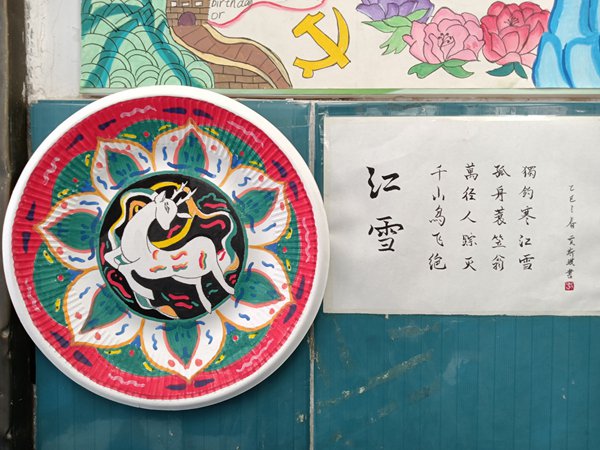 birthday
or
江雪
千山鸟飞绝
萬径人踪灭
孤舟蓑笠翁
獨钓寒江雪
乙巳之春